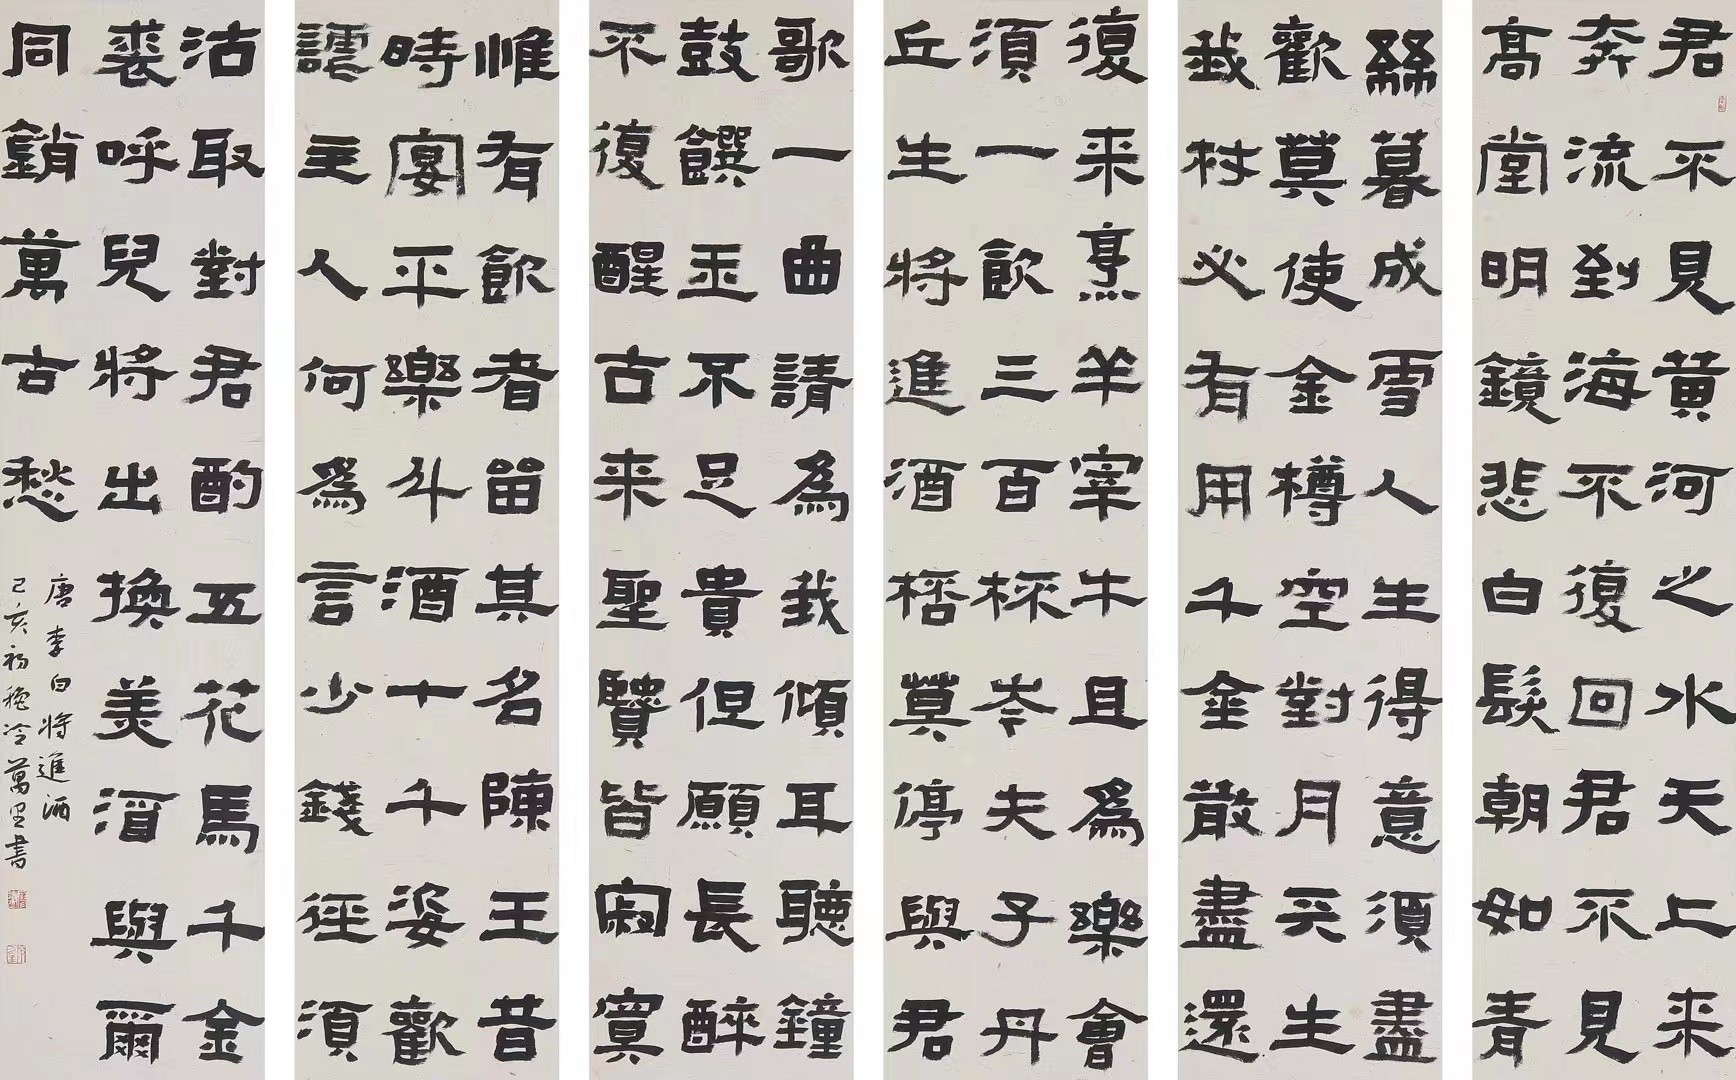 君不見黄河之水天上来
奔流到海不復回君不見
高堂明鏡悲白髮朝如青
絲暮成雪人生得意須盡
歡莫使金樽空對月天生
我材必有用千金散盡還
復来烹羊宰牛且為樂會
須一飲三百杯岑夫子丹
丘生將進酒桮莫停與君
歌一曲請為我傾耳聽鐘
鼓饌玉不足貴但願長醉
不復醒古来聖賢皆寂寞
惟有飲者留其名陳王昔
時宴平樂斗酒十千姿歡
謔主人何為言少錢徑須
沽取對君酌五花馬千金
裘呼兒將出換美酒與爾
同銷萬古愁
唐李白將進酒
己亥初穐冷萬里書